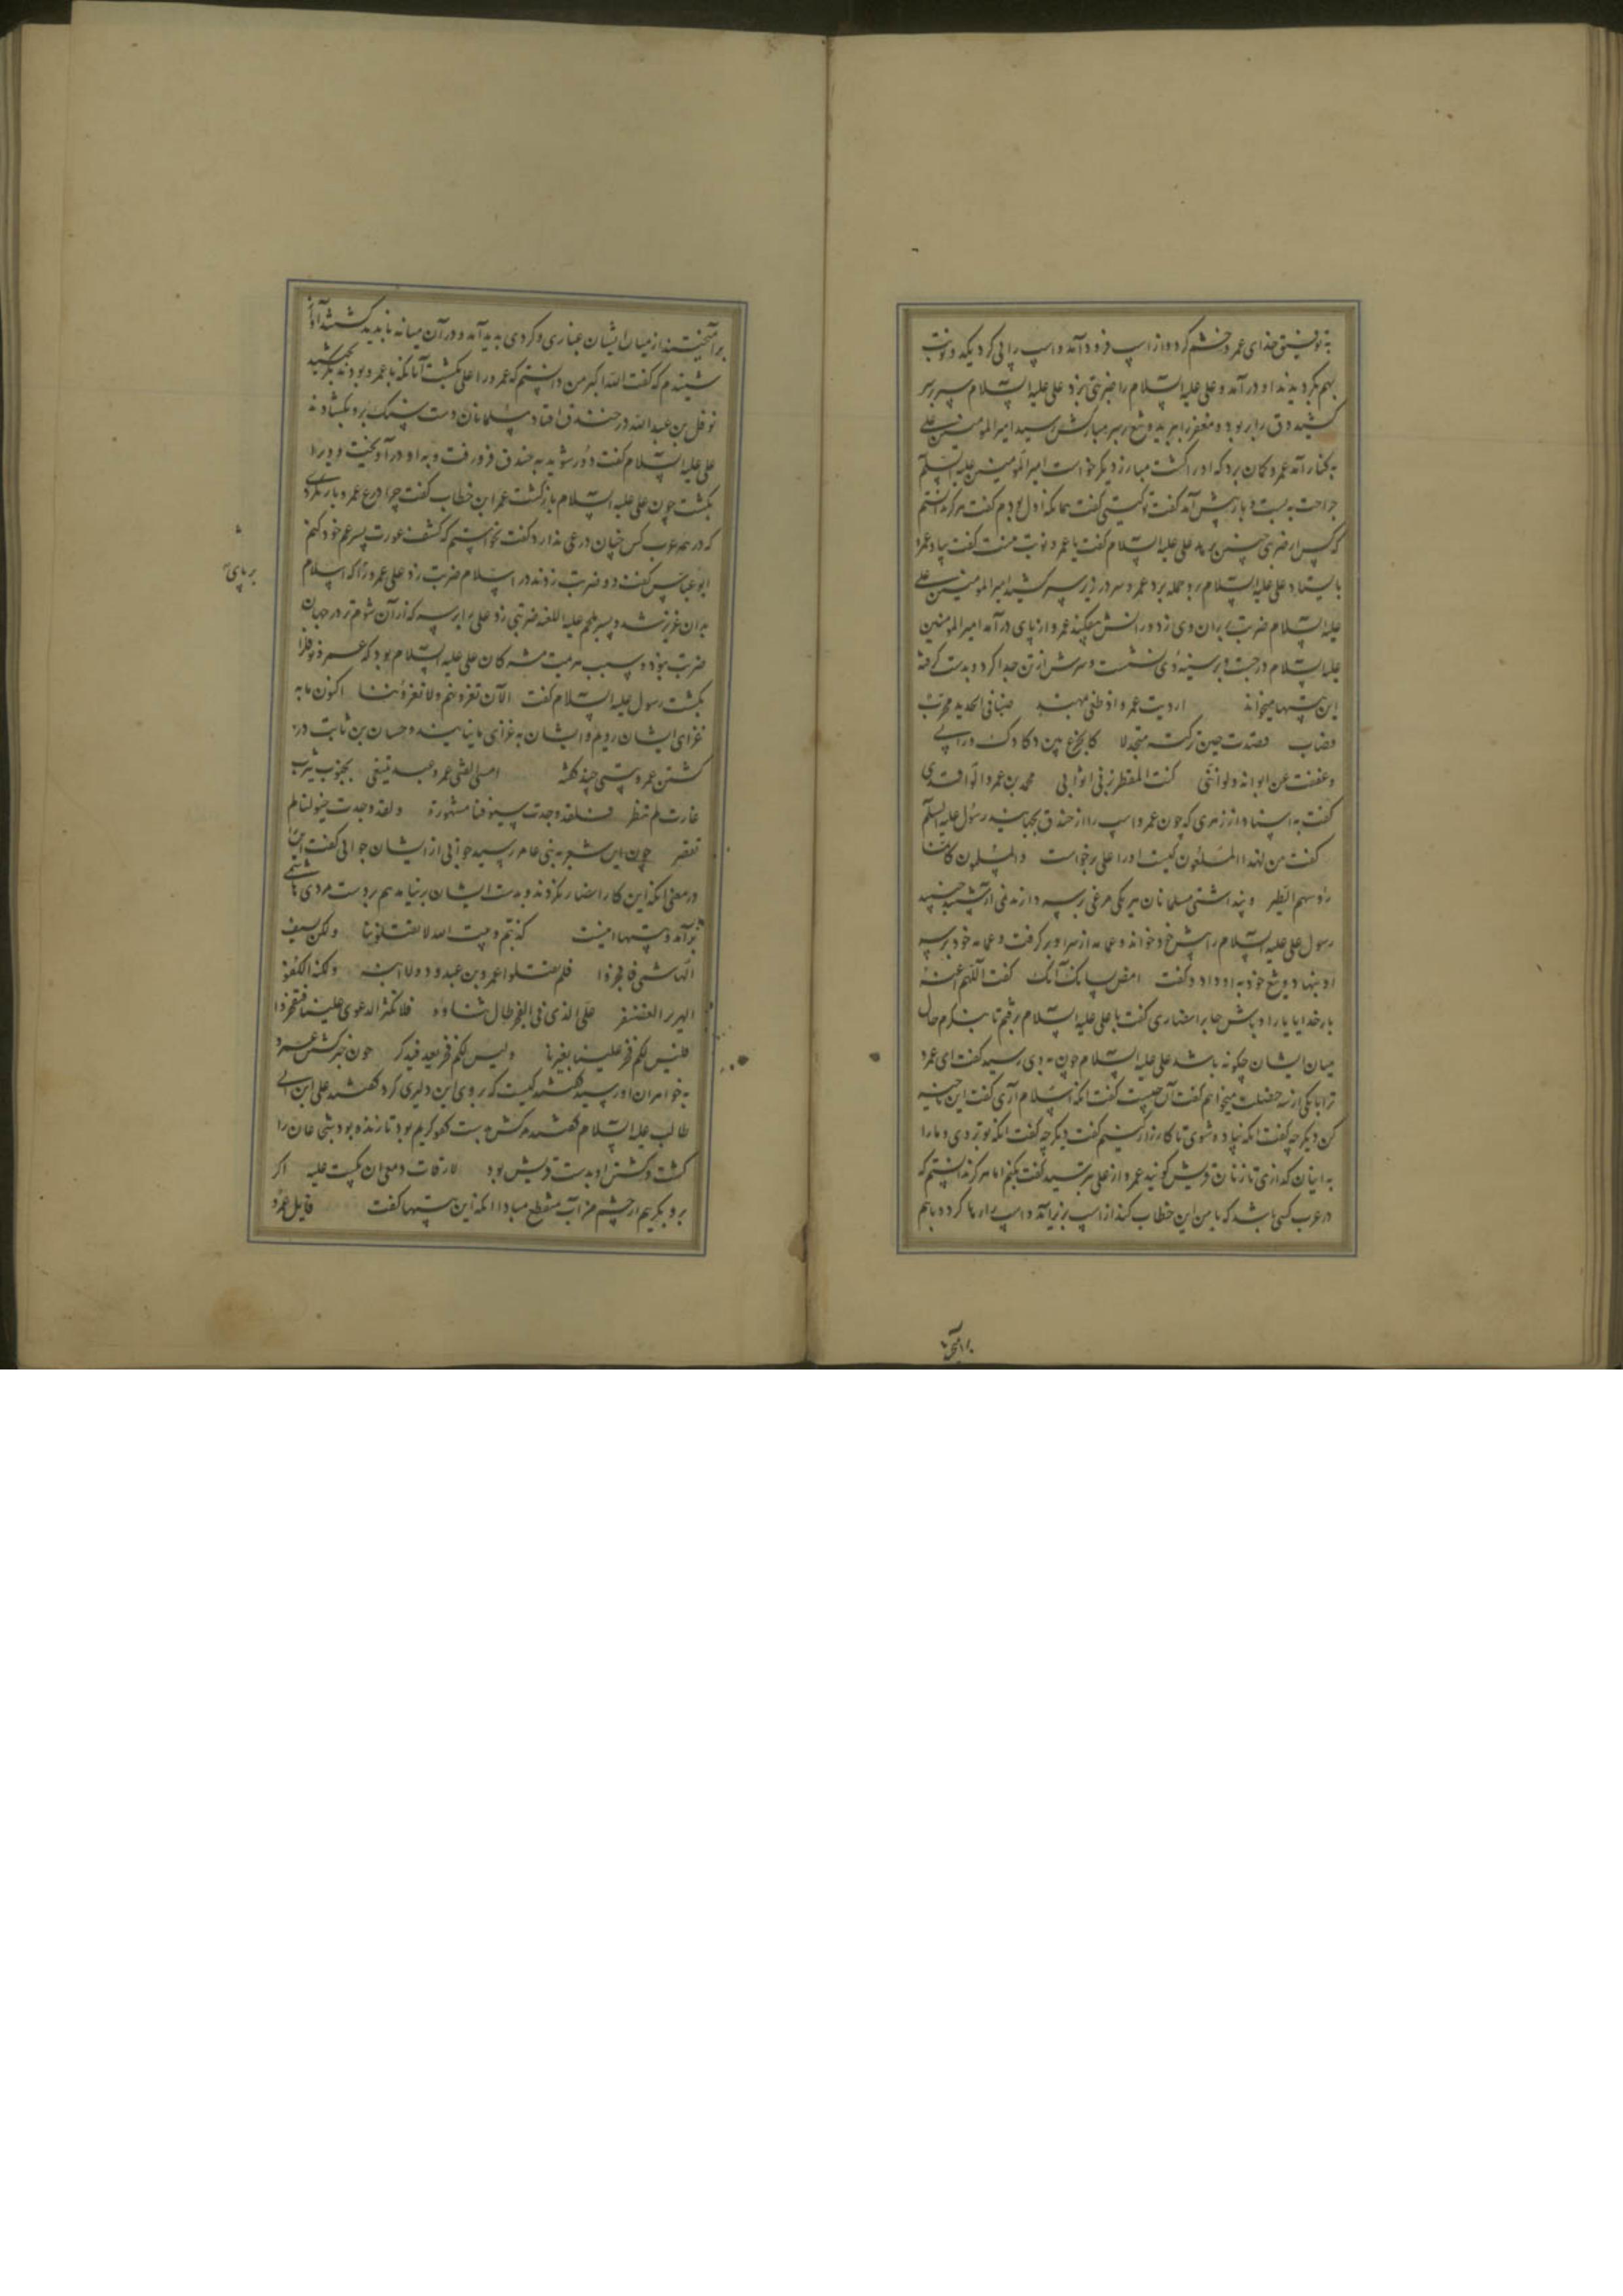 به توفیق خدای عمرو خشم کرد و از اسپ فرود آمد و اسپ را پی کرد یکد و نوبت
بهم بگردیدند او درآمد و علی علیه السلام را ضربتی بزد علی علیه السلام سپر بر سر
کشید درق را ببرید و مغفر را ببرید و تیغ بر سر مبارکش رسید امیر المومنین علی
به کنار آمد عمرو گمان برد که او را کشت مبارز دیگر خواست امیر المومنین علیه السلم
جراحت ببست و باز پیش آمد گفت تو کیستی گفت همانکه اول بودم گفت هرگز ندانستم
که کس از ضربتی چنین برهد علی علیه السلام گفت یا عمرو نوبت منست گفت بیا و عمرو
بایستاد علی علیه السلام برو حمله برد عمرو سر در زیر سپر کشید امیر المومنین علی
علیه السلام ضربت بر ران وی زد و رانش بیفکند عمرو از پای درآمد امیر المومنین
علیه السلام درجست و بر سینه وی نشست و سرش از تن جدا کرد و بدست گرفته
این بیتها میخواند اردیت عمروا اذ طغی بمهند صافی الحدید مجرب
قضاب فصددت حین ترکته متجدلا کالجذع بین دکادک و روابی
و عففت عن اثوابه ولو اننی کنت المقطر بزنی اثوابی محمد بن عمر والواقدی
گفت به اسناد از زهری که چون عمرو اسپ را از خندق بجهانید رسول علیه السلم
گفت من لهذا المسلمون کیست او را علی برخاست والمسلمون کانما
رؤسهم الطیر و پنداشتی مسلمانان هر یکی مرغی بر سر دارند نمی
رسول علی علیه السلام را پیش خود خواند و عمامه از سر او برگرفت و عمامه خود بر سر
او نهاد و تیغ خود به او داد و گفت امض لشانک گفت اللهم اعنه
بار خدایا یار او باش جابر انصاری گفت با علی علیه السلام رفتم تا بنگرم حال
میان ایشان چگونه باشد علی علیه السلام چون به وی رسید گفت ای عمرو
ترا با یکی از سه خصلت میخوانم گفت آن چیست گفت آنکه اسلام آری گفت این
کن دیگر چه گفت آنکه پیاده شوی تا کارزار کنیم گفت دیگر چه گفت آنکه بر و ما را
به اینان گذاری تا زنان قریش گویند عمرو از علی بترسید گفت بکنم اما هرگز ندانستم که
در عرب کسی باشد که با من این خطاب کند از اسپ بزیر آمد و اسپ را رها کرد و باهم
برآمیختند
برآمیختند از میان ایشان غباری و گردی پدید آمد و در آن میانه ناپدید گشتند آواز
شنیدم که گفت الله اکبر من دانستم که عمرو را علی بکشت آنانکه با عمرو بودند بگریختند
نوفل بن عبد الله در خندق افتاد مسلمانان دست بسنگ برو بگشادند
علی علیه السلام گفت دور شوید به خندق فرو رفت و به او درآویخت و ویرا
بکشت چون علی علیه السلام بازگشت عمر ابن خطاب گفت چرا درع عمرو باز نکردی
که در همه عرب کس چنان درعی ندارد گفت نخواستم که کشف عورت پسر عم خود کنم
ابو عیاش گفت دو ضربت زدند در اسلام ضربت زد علی عمرو را که اسلام
بدان عزیز شد و پسر ملجم علیه اللعنه ضربتی زد علی را بر سر که از آن شوم تر در جهان
ضربت نبود و سبب هزیمت مشرکان علی علیه السلام بود که عمرو و نوفل را
بکشت رسول علیه السلام گفت الآن نغزوهم ولا تغزونا اکنون ما به
غزای ایشان رویم و ایشان به غزای ما نیایند و حسان بن ثابت در
کشتن عمرو بیتی چند گفته امسی الفتی عمرو عبد یبتغی بجنوب یثرب
غارت لم تنظر فلقد وجدت سیوفنا مشهوره ولقد وجدت خیولنا لم
تقصر چون این شعر به بنی عامر رسید جوانی از ایشان جوابی گفت این را
در معنی آنکه این کار انصار نکردند و بدست ایشان برنیامد هم بر دست مردی هاشمی
برآمد و بیتها اینست کذبتم و بیت الله لا تقتلوننا ولکن بسیف
الهاشمی فافخروا فلم تقتلوا عمرو بن عبد ود ولا ابنه ولکنه الکفو
الهزبر الغضنفر علی الذی فی الفخر طال ثناؤه فلا تکثروا الدعوی علینا فتفخروا
فلیس لکم فخر علینا بغیرنا ولیس لکم فخر یعد فیذکر چون خبر کشتن عمرو
به خواهران او رسید گفتند کیست که بر وی این دلیری کرد گفتند علی ابن ابی
طالب علیه السلام گفتند مرگش بدست کفو کریم بود تا زنده بود شجاعان را
کشت و کشتن او بدست قریش بود لا رقات دمعی ان بکیت علیه اگر
برو بگریم از چشم من آب منقطع مبادا آنکه این بیتها گفت قایل عمرو
بر پای